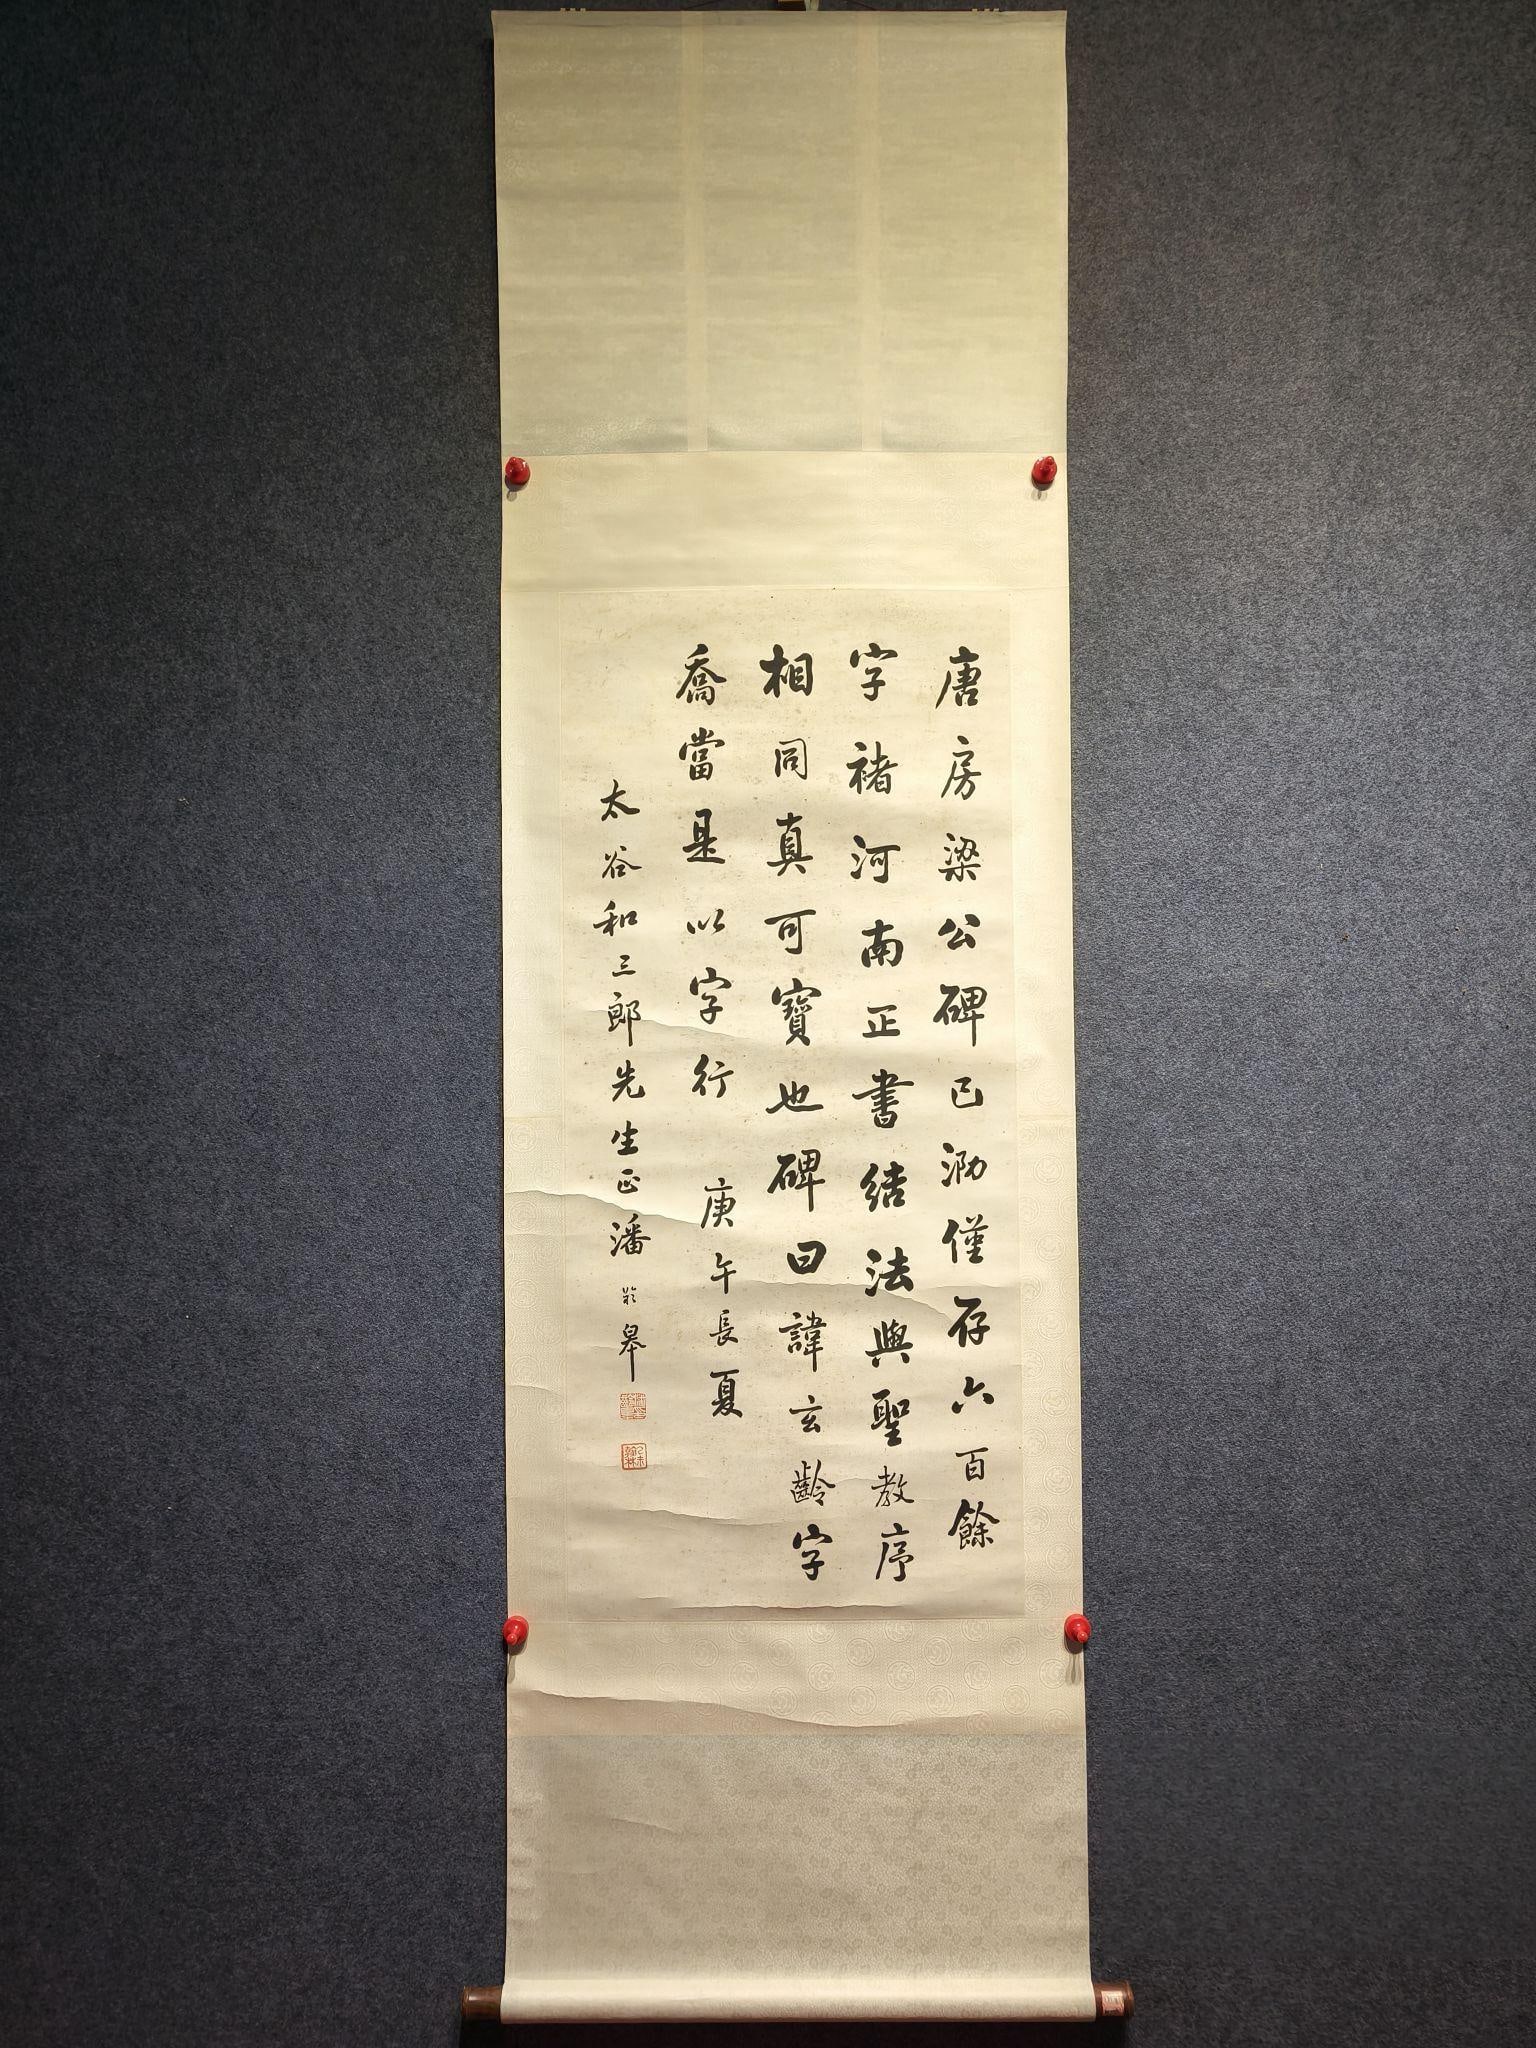 唐房梁公碑已泐僅存六百餘
字褚河南正書結法與聖教序
相同真可寶也碑曰諱玄齡字
喬當是以字行 庚午長夏
太谷和三郎先生正 潘齡皋